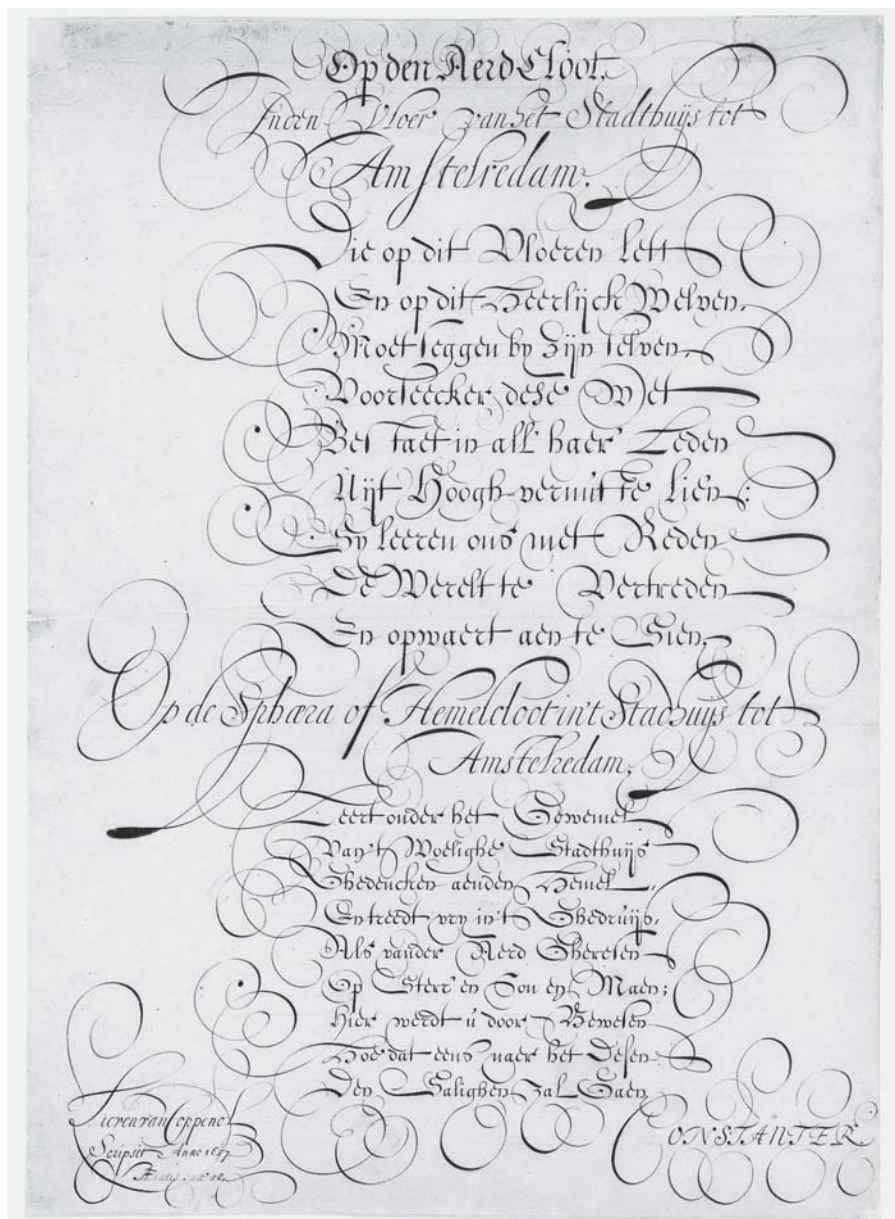 Op den Aerd Cloot.
Inden Vloer van het Stadthuijs tot
Amstelredam.
Die op dit Vloeren lett
En op dit Heerlijck Welven,
Moet seggen by Zijn selven,
Voorseecker dese Wet
Bestaet in all' haer Leden
Uijt Hoogh-vernufte lien:
Sy leeren ons met Reden
De Werelt te Vertreden
En opwaert aen te Sien,
Op de Sphæra of Hemelcloot in't Stadhuijs tot
Amstelredam.
Leert onder het Gewemel
Van't Woelighe Stadthuijs
Ghedencken aenden Hemel,
En treedt vry in't Ghedruijs,
Als vander Aerd Gheresen
Op Sterr en Son en Maen;
Hier werdt u door Bewesen
Hoe dat eens naer het Desen
Den Salighen zal Gaen
Lieven van Coppenol
Scripsit Anno
CONSTANTER